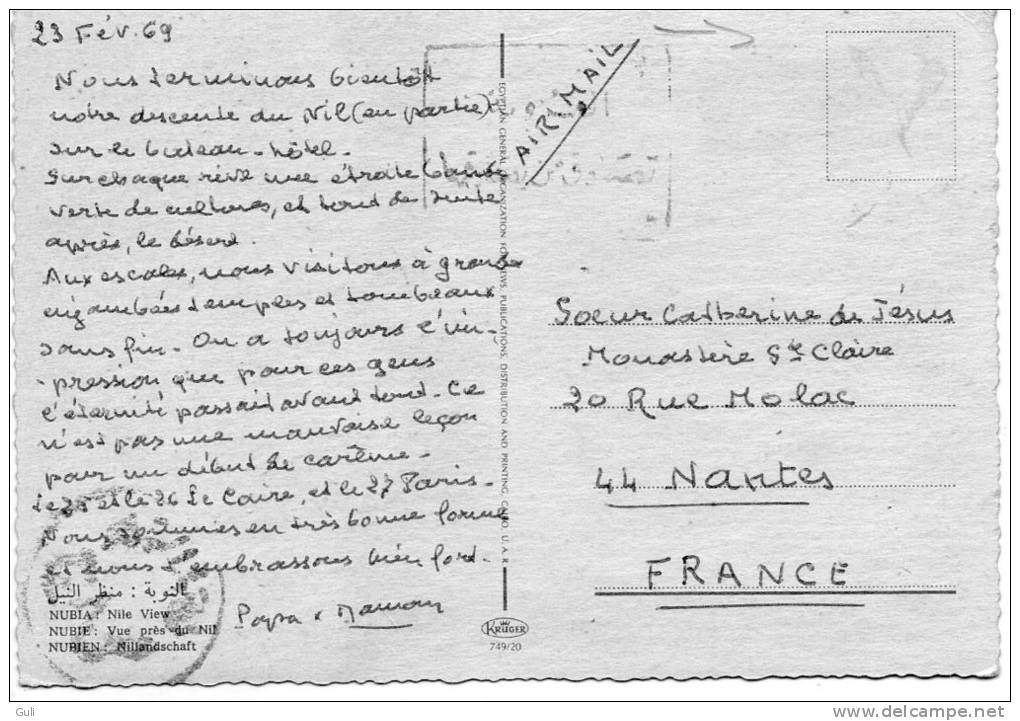 23 Fév. 69
Nous terminons bientôt
notre descente du Nil (en partie)
sur le bateau-hôtel.
Sur chaque rive une étroite bande
verte de cultures, et tout de suite
après, le désert.
Aux escales, nous visitons à grandes
enjambées temples et tombeaux
sans fin. On a toujours l'im-
pression que pour ces gens
l'éternité passait avant tout. Ce
n'est pas une mauvaise leçon
pour un début de carême.
Le 25 et le 26 Le Caire, et le 27 Paris.
Nous sommes en très bonne forme
et nous t'embrassons bien fort.
Papa & Maman
النوبة : منظر النيل
NUBIA : Nile View
NUBIE : Vue près du Nil
NUBIEN : Nillandschaft
EGYPTIAN GENERAL ORGANIZATION FOR NEWS, PUBLICATIONS, DISTRIBUTION AND PRINTING, CAIRO U.A.R.
KRÜGER
749/20
AIR MAIL
Soeur Catherine de Jésus
Monastère Ste Claire
20 Rue Molac
44 Nantes
FRANCE
Guli
http://www.delcampe.net